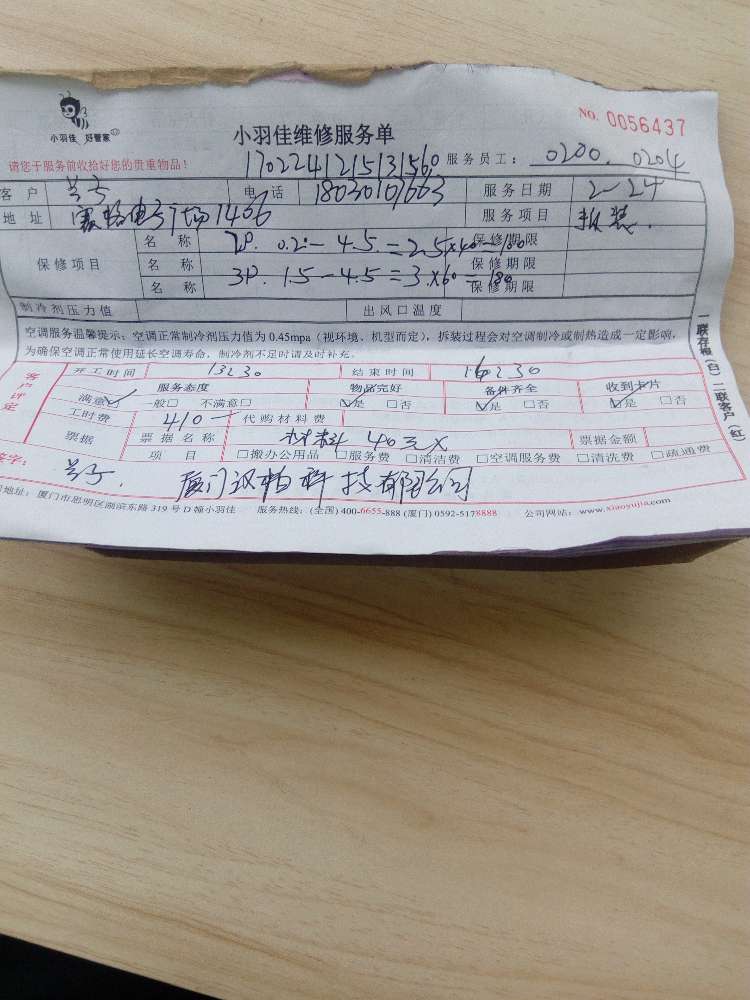 小羽佳 好管家
NO. 0056437
小羽佳维修服务单
请您于服务前收拾好您的贵重物品!
170224121513156 服务员工: 0200. 0204
客 户 电 话 18030107663 服务日期 2-24
地 址 电子广场1466 服务项目 拆装.
保修项目 名 称 2P. 0.2-4.5=2.5×40 保修期限
名 称 3P. 1.5-4.5=3×60=180 保修期限
名 称 保修期限
制冷剂压力值 出风口温度
空调服务温馨提示: 空调正常制冷剂压力值为 0.45mpa (视环境、机型而定), 拆装过程会对空调制冷或制热造成一定影响,
为确保空调正常使用延长空调寿命, 制冷剂不足时请及时补充。
一联存根(白) 二联客户(红)
客户评定
开工时间 13:30 结束时间 16:30
服务态度 物品完好 备件齐全 收到卡片
满意☑ 一般□ 不满意□ ☑是 □否 ☑是 □否 ☑是 □否
工时费 410- 代购材料费
票据 票据名称 材料 403 票据金额
项 目 □搬办公用品 □服务费 □清洁费 □空调服务费 □清洗费 □疏通费
签字: 厦门汉柏科技有限公司
地址: 厦门市思明区湖滨东路 319 号 D 幢小羽佳 服务热线: (全国) 400-6655-888 (厦门) 0592-5178888 公司网站: www.xiaoyujia.com